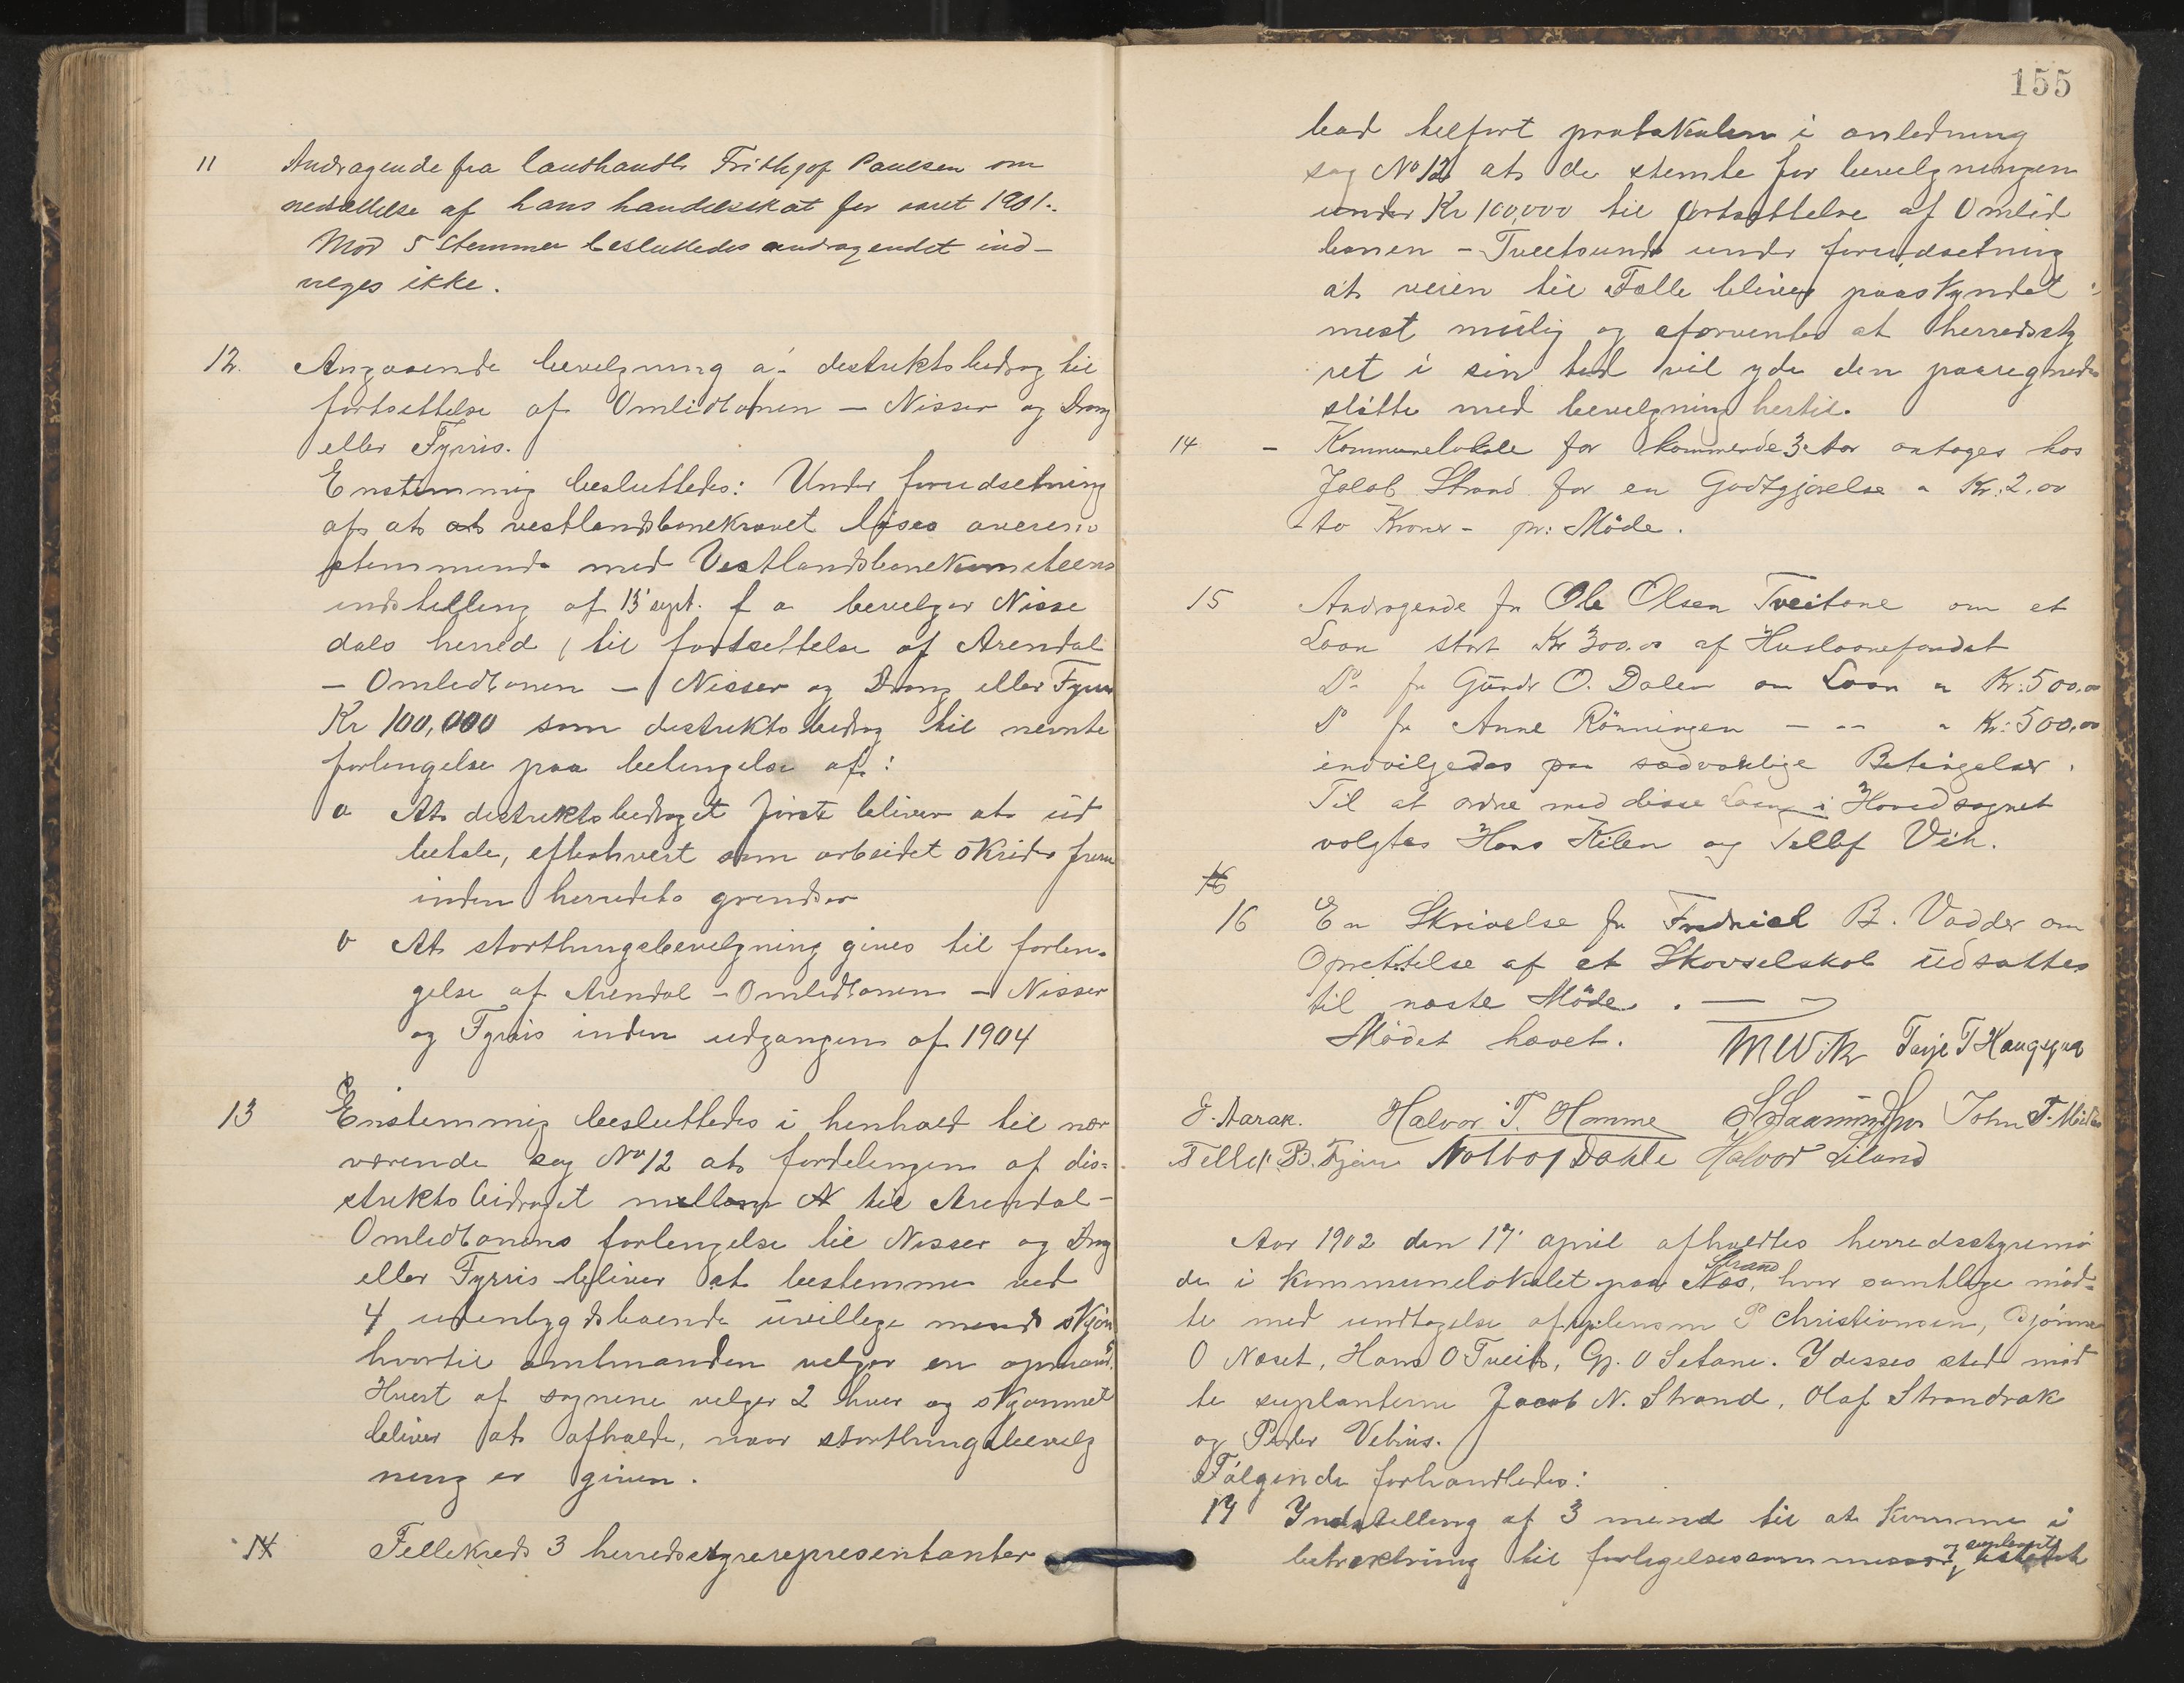 11 Andragende fra landhandl. Frithjof Paulsen om
nedsættelse af hans handelsskat for aaret 1901.
Mod 5 stemmer besluttedes andragendet ind-
vilges ikke.
12. Angaaende bevelgning a: destrikts bedrag til
fortsettelse af Omlidbanen – Nisser og Drang
eller Fyrris.
Enstemmig besluttedes: Under forudsetning
af at at vestlandsbanekravet løses overens
stemmende med Vestlandsbanekomiteens
indstilling af 13' sept. f a bevelger Nisse
dals herred, til fortsettelse af Arendal
– Omlidbanen – Nisser og Drang eller Fyrris
Kr 100,000 som destrikts bedrag til nevnte
forlengelse paa betingelse af:
a At destriktsbedraget først bliver at ud
betale, efterhvert som arbeidet skrider frem
inden herredets grendser
b At storthingsbevelgning gives til forlen-
gelse af Arendal – Omlidbanen – Nisser
og Fyrris inden udgangen af 1904
13 Enstemmig besluttedes i henhold til nær
værende sag No 12 at fordelingen af dis-
trikts bidraget mellem N til Arendal –
Omlidbanens forlengelse til Nisser og Drang
eller Fyrris bliver at bestemme ved
4 udenbygdsboende uvillige mends skjøn
hvortil amtmanden velger en opmand.
Hvert af sognene velger 2 hver og skjønnet
bliver at afholde, naar storthingsbevelg
ning er given.
14 Fellekreds 3 herredsstyrerepresentanter
155
bad tilført protokolen i anledning
sag No 12 at de stemte for bevelgningen
under Kr 100,000 til fortsettelse af Omlid
banen – Tveitsund under forudsetning
at veien til Fælle bliver paaskyndet
mest mulig og forventes at herredssty
ret i sin tid vil yde den paaregnede
støtte med bevelgning hertil.
14 – Kommunelokale for kommende 3 Aar antages hos
Jakob Strand for en Godtgjørelse a Kr: 2,00
– to Kroner – pr: Møde.
15 Andragende fr Ole Olsen Tveitane om et
Laan stort Kr 300,00 af Huslaanefondet
Do fr Gundr O. Dalen om Laan a Kr: 500,00
Do fr Anne Rønningen – – – a Kr: 500,00
indvilgedes paa sædvanlige Betingelser.
Til at ordne med disse Laan i Hovedsognet
valgtes Hans Kilen og Tellef Vik.
16
16 En Skrivelse fr Fredriek B. Vadder om
Oprettelse af et Skovselskab udsattes
til næste Møde. –
Mødet hævet. MWik Tarje T Haugsjaa
J. Aarak. Halvor T. Homme S Saamundsen John T.
Tellef B. Notto J Dahle Halvor Liland
Aar 1902 den 17' april afholdtes herredsstyremø
de i kommunelokalet paa Næs, Strand hvor samtlige mød-
te med undtagelse af P Christiansen, Bjønn
O Næset, Hans O Tveit, Gp. O Setane. I disses sted mød
te suplanterne Jacob N. Strand, Olaf Strandrak
og Peder Vehus.
Følgende forhandledes:
17 Indstilling af 3 mend til at komme i
betraktning til forligelseskommissær og suplant